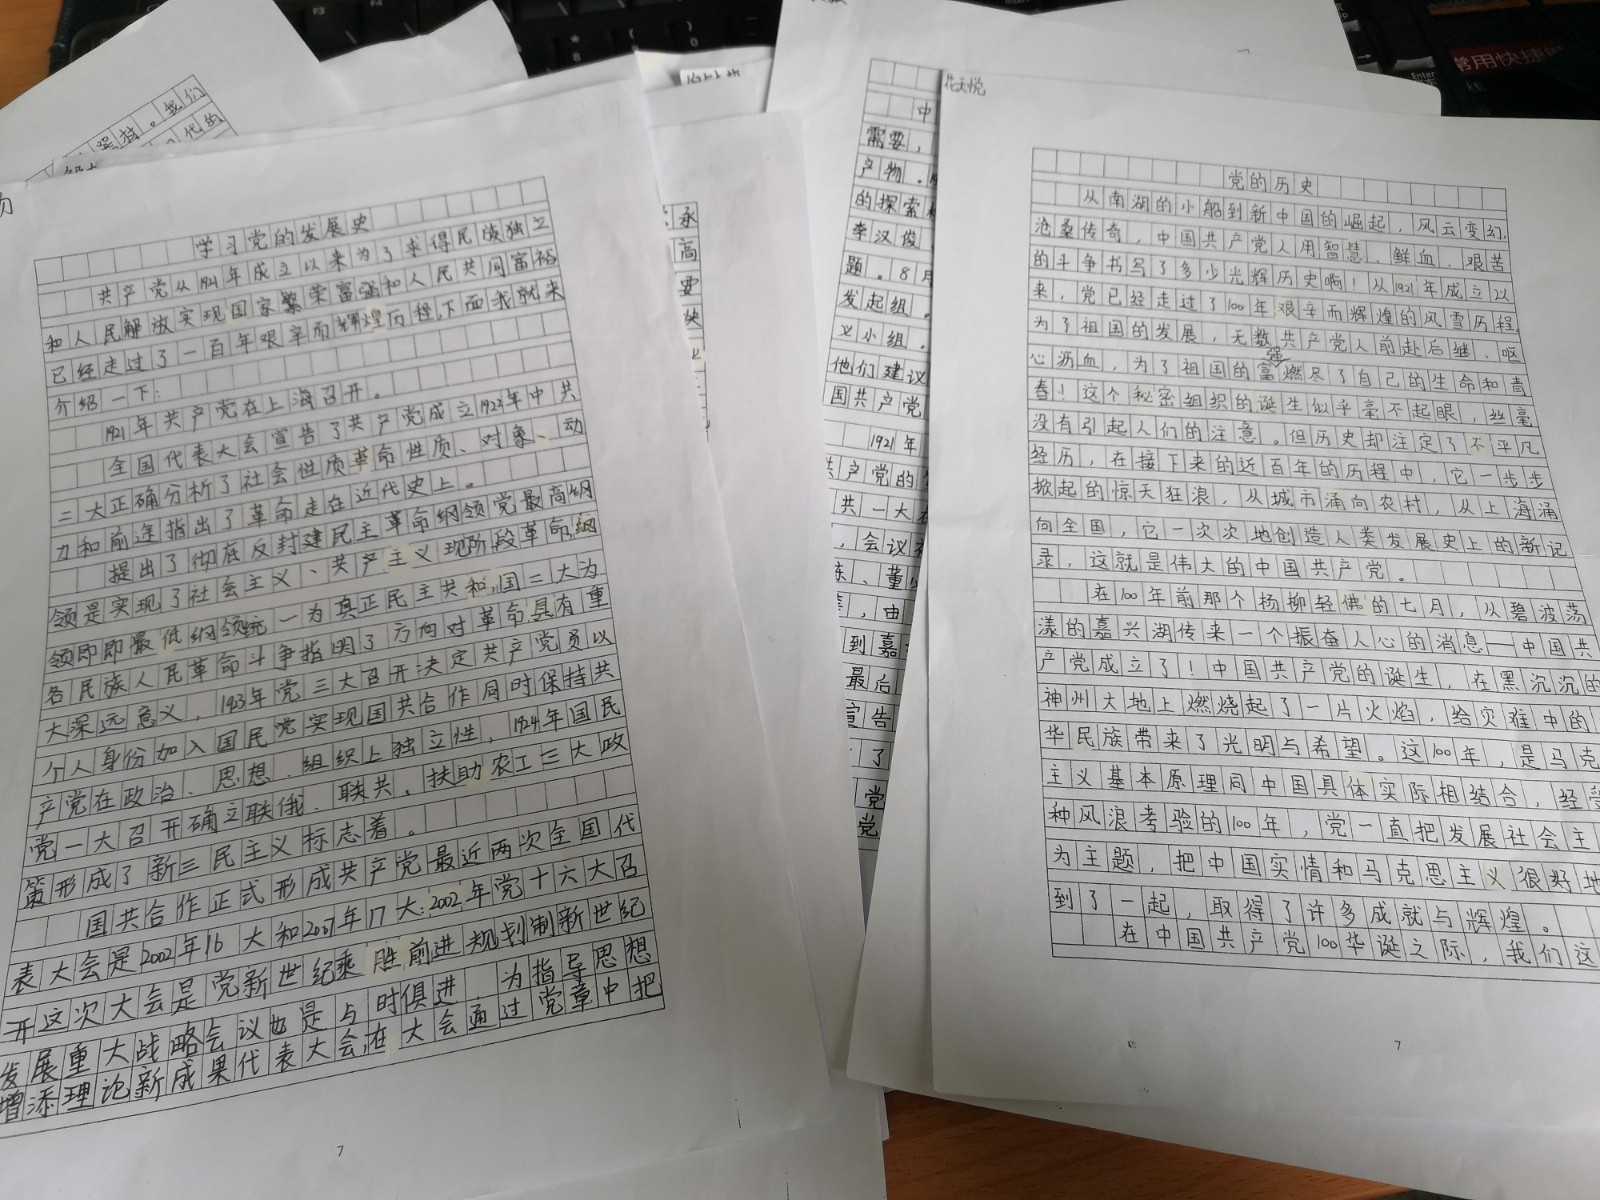 学习党的发展史
共产党从1921年成立以来为了求得民族独立
和人民解放实现国家繁荣富强和人民共同富裕
已经走过了一百年艰辛而辉煌历程,下面我就来
介绍一下:
1921年共产党在上海召开。
全国代表大会宣告了共产党成立1922年中共
三大正确分析了社会性质革命性质、对象、动
力和前途指出了革命走在近代史上。
提出了彻底反封建民主革命纲领党最高纲
领是实现了社会主义、共产主义现阶段革命纲
领即即最低纲领统一为真正民主共和国三大为
各民族人民革命斗争指明了方向对革命具有重
大深远意义,1923年党三大召开决定共产党员以
个人身份加入国民党实现国共合作同时保持共
产党在政治、思想、组织上独立性,1924年国民
党一大召开确立联俄、联共、扶助农工三大政
策形成了新三民主义标志着。
国共合作正式形成共产党最近两次全国代
表大会是2002年16大和2007年17大:2002年党十六大召
开这次大会是党新世纪乘胜前进规划制新世纪
发展重大战略会议也是与时俱进、为指导思想
增添理论新成果代表大会,在大会通过党章中把
7
需要,
产物。
的探索
李汉俊
题。8月
发起组。
义小组。
他们建议
国共产党
1921年
共产党的
共一大在
,会议
,由
到嘉
最后
宣告
了
党
党
承
高
要
党的历史
从南湖的小船到新中国的崛起,风云变幻,
沧桑传奇,中国共产党人用智慧、鲜血、艰苦
的斗争书写了多少光辉历史啊!从1921年成立以
来,党已经走过了100年艰辛而辉煌的风雪历程,
为了祖国的发展,无数共产党人前赴后继、呕
心沥血,为了祖国的富强燃尽了自己的生命和青
春!这个秘密组织的诞生似乎毫不起眼,丝毫
没有引起人们的注意。但历史却注定了不平凡
经历,在接下来的近百年的历程中,它一步步
掀起的惊天狂浪,从城市涌向农村,从上海涌
向全国,它一次次地创造人类发展史上的新记
录,这就是伟大的中国共产党。
在100年前那个扬柳轻佛的七月,从碧波荡
漾的嘉兴湖传来一个振奋人心的消息—中国共
产党成立了!中国共产党的诞生,在黑沉沉的
神州大地上燃烧起了一片火焰,给灾难中的
华民族带来了光明与希望。这100年,是马克
主义基本原理同中国具体实际相结合,经受
种风浪考验的100年,党一直把发展社会主
为主题,把中国实情和马克思主义很好地
到了一起,取得了许多成就与辉煌。
在中国共产党100华诞之际,我们这
7
常用快捷